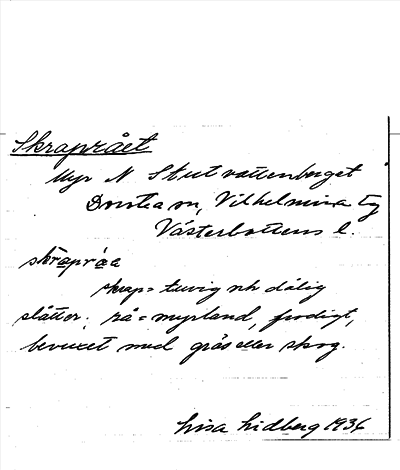 Skraprået
Myr N Stutvattenberget
Dorotea sn, Vilhelmina tg
Västerbottens l.
skrapråa
skrap = tuvig och dålig
slåtter. rå = myrland, frodigt,
bevuxet med gräs eller skog.
Lisa Lidberg 1936